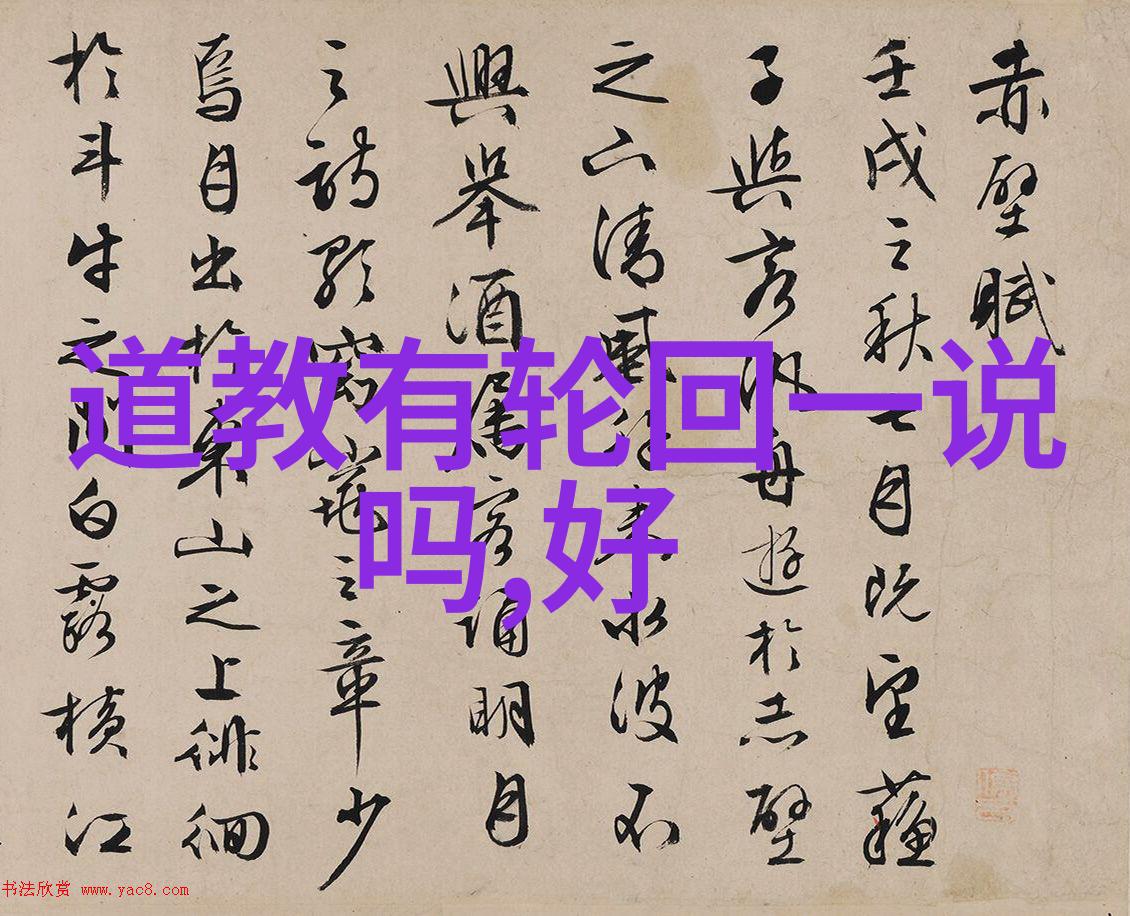 道教有轮回一说
吗,好
赤壁賦
壬戌之秋七月既望蘓
子與客汎舟遊於赤壁
之下清風徐來水波不
興舉酒屬客誦明月
之詩歌窈窕之章少
焉月出於東山之上徘徊
於斗牛之間白露橫江
书法欣赏 www.yac8.com